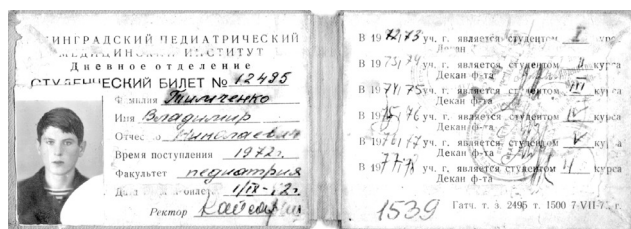 ЛЕНИНГРАДСКИЙ ПЕДИАТРИЧЕСКИЙ
МЕДИЦИНСКИЙ ИНСТИТУТ
Дневное отделение
СТУДЕНЧЕСКИЙ БИЛЕТ № 12495
Фамилия Тимченко
Имя Владимир
Отчество Николаевич
Время поступления 1972г.
Факультет педиатрия
Ректор
В 1972/73 уч. г. является студентом I курса
Декан ф-та
В 1973/74 уч. г. является студентом II курса
Декан ф-та
В 1974/75 уч. г. является студентом III курса
Декан ф-та
В 1975/76 уч. г. является студентом IV курса
Декан ф-та
В 1976/77 уч. г. является студентом V курса
Декан ф-та
В 1977/78 уч. г. является студентом курса
Декан ф-та
1539
Гатч. т. з. 2495 т. 1500 7-VII-